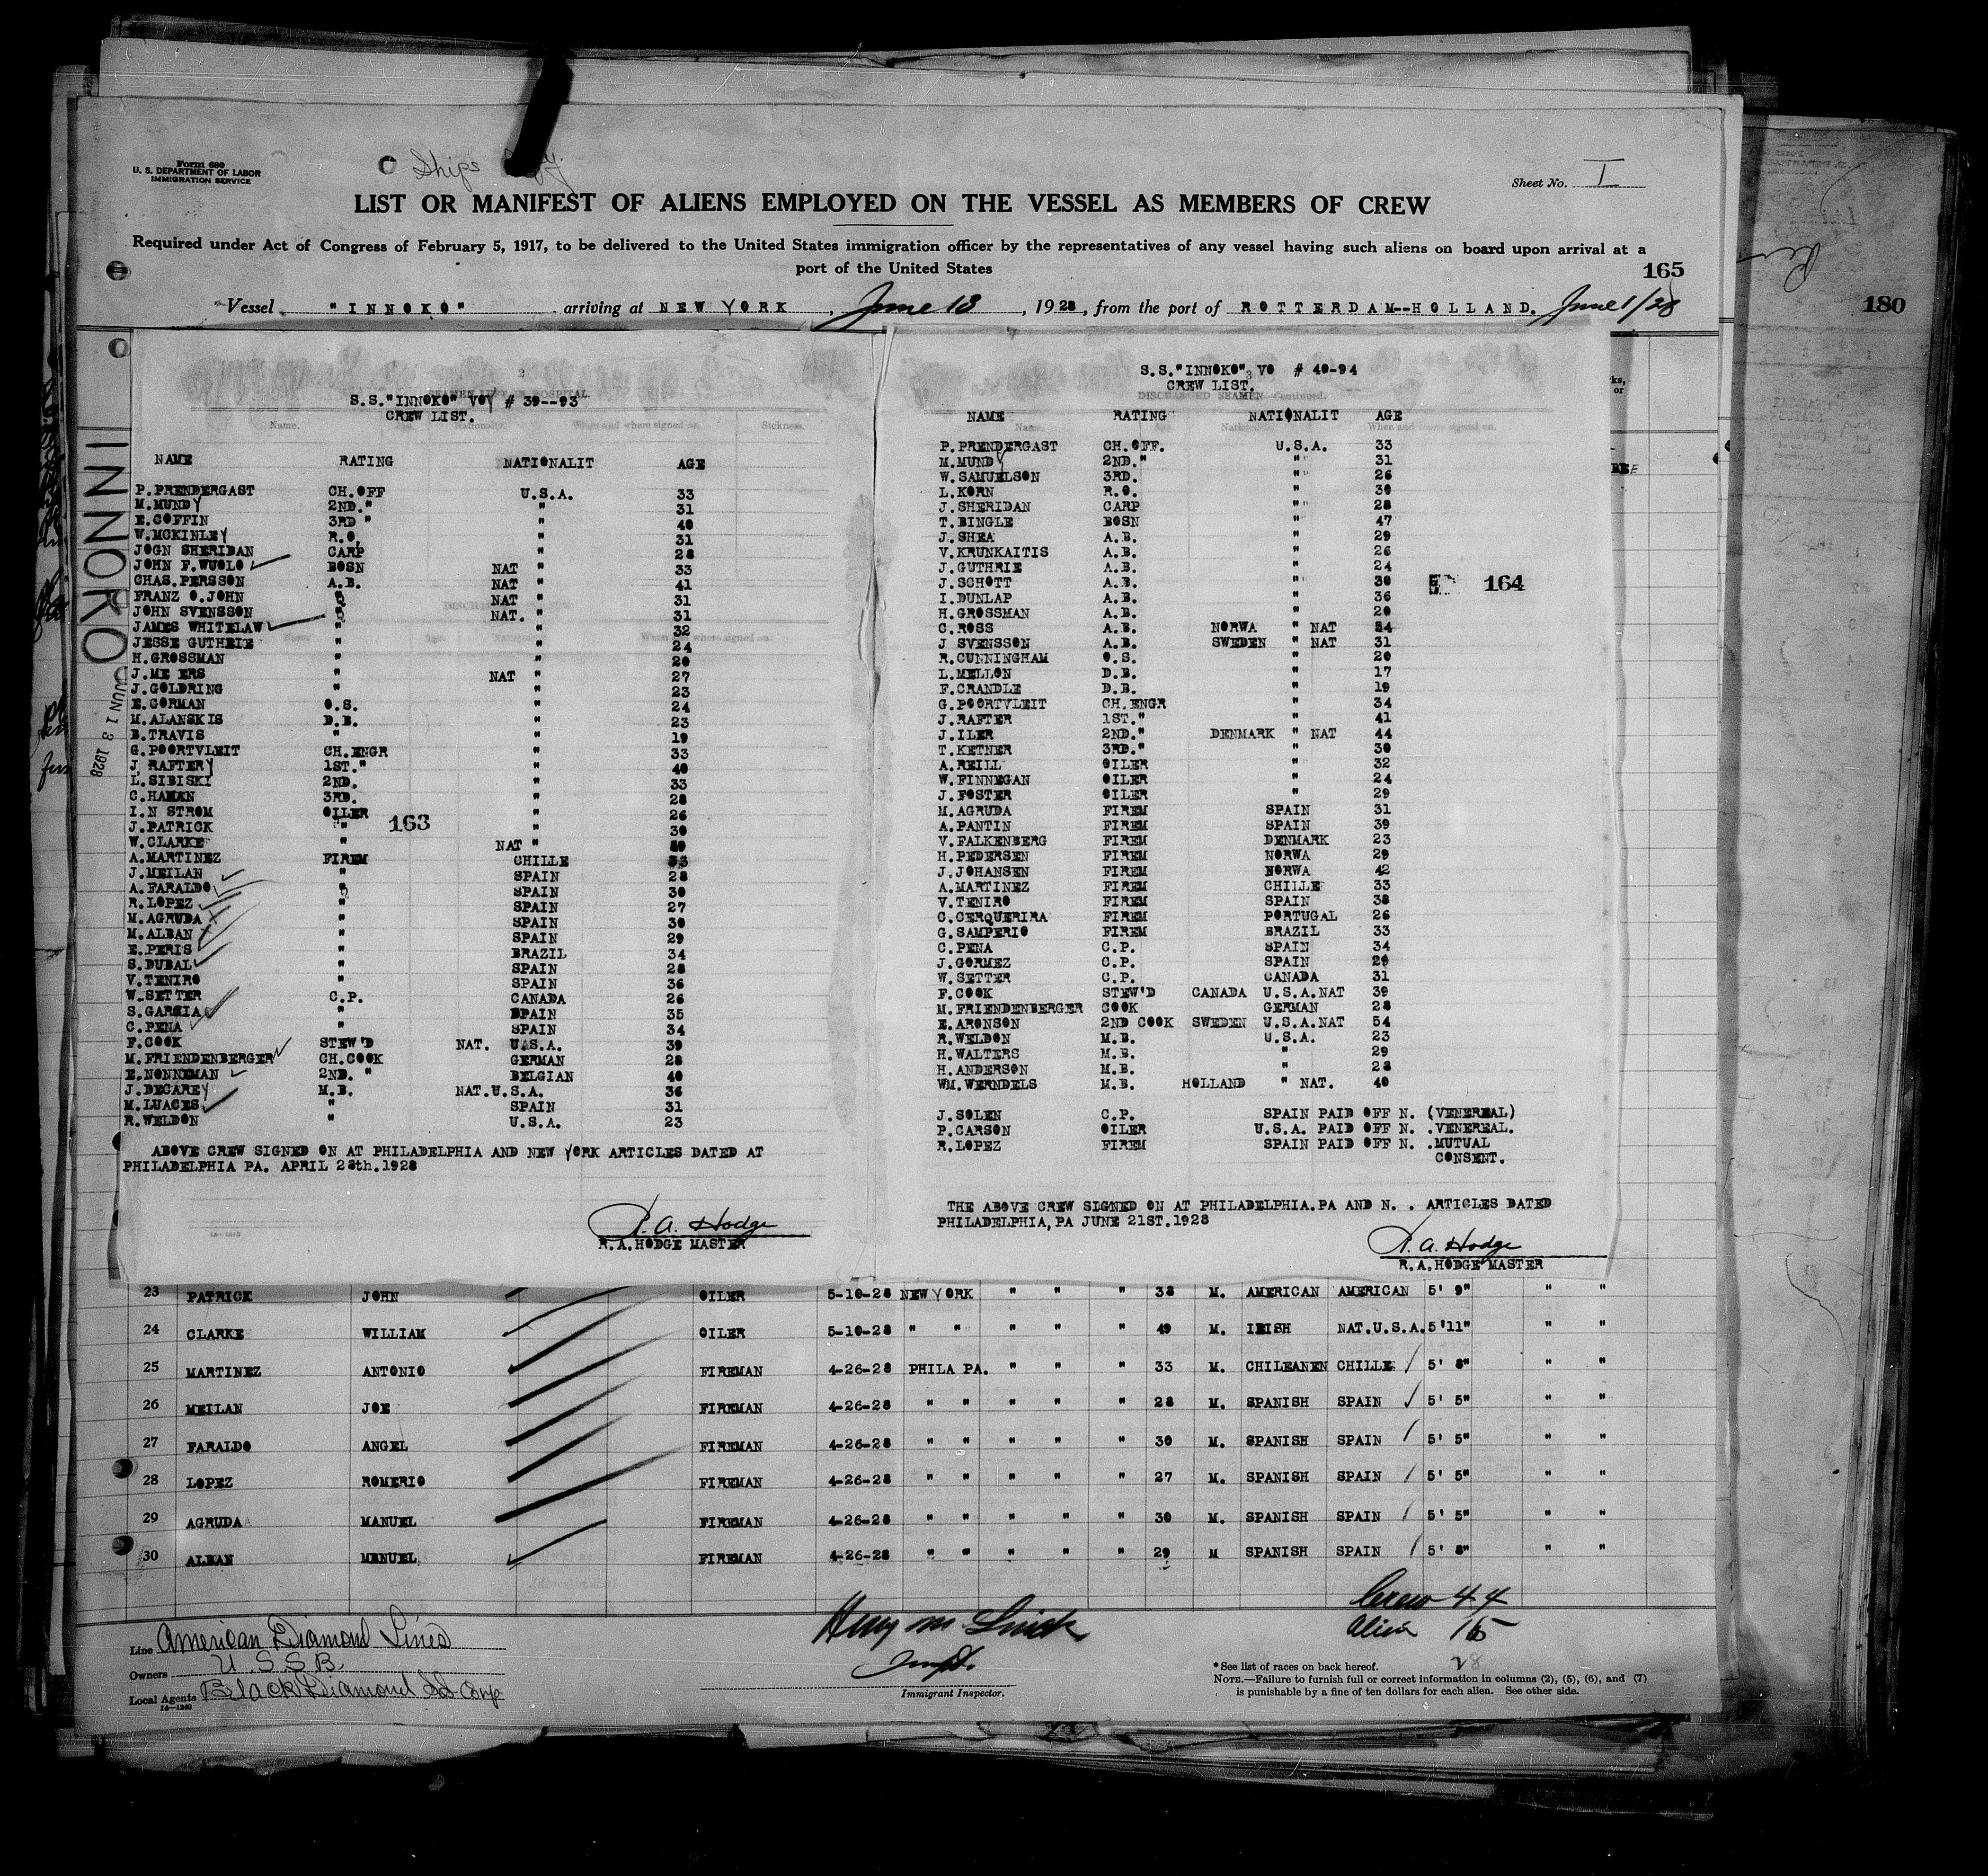 Form 680
U. S. DEPARTMENT OF LABOR
IMMIGRATION SERVICE
Ships
Sheet No. I
LIST OR MANIFEST OF ALIENS EMPLOYED ON THE VESSEL AS MEMBERS OF CREW
Required under Act of Congress of February 5, 1917, to be delivered to the United States immigration officer by the representatives of any vessel having such aliens on board upon arrival at a
port of the United States
165
180
Vessel "INNOKO" arriving at NEW YORK, June 13, 1928, from the port of ROTTERDAM--HOLLAND. June 1/28
INNOKO
JUN 13 1928
S.S."INNOKO" VOY # 39--93
CREW LIST.
NAME RATING NATIONALIT AGE
P.PRENDERGAST CH.OFF U.S.A. 33
M.MUNDY 2ND." " 31
E.COFFIN 3RD " " 40
W.MCKINLEY R.O. " 31
JOGN SHERIDAN CARP " 28
JOHN F.WUOLO BOSN NAT " 33
CHAS.PERSSON A.B. NAT " 41
FRANZ O.JOHN " NAT " 31
JOHN SVENSSON " NAT. " 31
JAMES WHITELAW " " 32
JESSE GUTHRIE " " 24
H.GROSSMAN " " 20
J.ME ERS " NAT " 27
J.GOLDRING " " 23
E.GORMAN O.S. " 24
M.ALANSKIS D.B. " 23
B.TRAVIS " " 19
G.POORTVLEIT CH.ENGR " 33
J.RAFTERY 1ST." " 40
L.SIBISKI 2ND. " 33
C.HAMAN 3RD. " 28
I.N STROM OILER " 26
J.PATRICK " " 30
163
W.CLARKE " NAT "
A.MARTINEZ FIREM CHILLE 33
J.MEILAN " SPAIN 28
A.FARALDO " SPAIN 30
R.LOPEZ " SPAIN 27
M.AGRUDA " SPAIN 30
M.ALBAN " SPAIN 29
E.PERIS " BRAZIL 34
S.DUBAL " SPAIN 28
V.TENIRO " SPAIN 36
W.SETTER C.P. CANADA 26
S.GARCIA " SPAIN 35
C.PENA " SPAIN 34
F.COOK STEW'D NAT. U.S.A. 39
M.FRIENDENBERGER CH.COOK GERMAN 28
E.NONNEMAN 2ND. " BELGIAN 40
J.DECAREY M.B. NAT.U.S.A. 36
M.LUACES " SPAIN 31
R.WELDON " U.S.A. 23
ABOVE CREW SIGNED ON AT PHILADELPHIA AND NEW YORK ARTICLES DATED AT
PHILADELPHIA PA. APRIL 28th.1928
R.A. Hodge
R.A.HODGE MASTER
S.S."INNOKO" VO # 40-94
CREW LIST.
DISCHARGED SEAMEN—Continued.
NAME RATING NATIONALIT AGE
P.PRENDERGAST CH.OFF. U.S.A. 33
M.MUNDY 2ND." " 31
W.SAMUELSON 3RD. " 26
L.KORN R.O. " 30
J.SHERIDAN CARP " 28
T.BINGLE BOSN " 47
J.SHEA A.B. " 29
V.KRUNKAITIS A.B. " 26
J.GUTHRIE A.B. " 24
J.SCHOTT A.B. " 30
164
I.DUNLAP A.B. " 36
H.GROSSMAN A.B. " 20
C.ROSS A.B. NORWA " NAT 54
J SVENSSON A.B. SWEDEN " NAT 31
R.CUNNINGHAM O.S. " 20
L.MELLON D.B. " 17
F.CRANDLE D.B. " 19
G.POORTVLEIT CH.ENGR " 34
J.RAFTER 1ST." " 41
J.ILER 2ND." DENMARK " NAT 44
T.KETNER 3RD." " 30
A.REILL OILER " 32
W.FINNEGAN OILER " 24
J.FOSTER OILER " 29
M.AGRUDA FIREM SPAIN 31
A.PANTIN FIREM SPAIN 39
V.FALKENBERG FIREM DENMARK 23
H.PEDERSEN FIREM NORWA 29
J.JOHANSEN FIREM NORWA 42
A.MARTINEZ FIREM CHILLE 33
V.TENIRO FIREM SPAIN 38
C.CERQUERIRA FIREM PORTUGAL 26
G.SAMPERIO FIREM BRAZIL 33
C.PENA C.P. SPAIN 34
J.GORMEZ C.P. SPAIN 29
W.SETTER C.P. CANADA 31
F.COOK STEW'D CANADA U.S.A.NAT 39
M.FRIENDENBERGER COOK GERMAN 28
E.ARONSON 2ND COOK SWEDEN U.S.A.NAT 54
R.WELDON M.B. U.S.A. 23
H.WALTERS M.B. " 29
H.ANDERSON M.B. " 28
WM.WERNDELS M.B. HOLLAND " NAT. 40
J.SOLEN C.P. SPAIN PAID OFF N. (VENEREAL)
P.CARSON OILER U.S.A. PAID OFF N. .VENEREAL.
R.LOPEZ FIREM SPAIN PAID OFF N. .MUTUAL
CONSENT.
THE ABOVE CREW SIGNED ON AT PHILADELPHIA.PA AND N. . ARTICLES DATED
PHILADELPHIA,PA JUNE 21ST.1928
R.A. Hodge
R.A.HODGE MASTER
23 PATRICK JOHN OILER 5-10-28 NEW YORK " " " 38 M. AMERICAN AMERICAN 5' 9" " "
24 CLARKE WILLIAM OILER 5-10-28 " " " " " 49 M. IRISH NAT.U.S.A. 5'11" " "
25 MARTINEZ ANTONIO FIREMAN 4-26-28 PHILA PA. " " " 33 M. CHILEANEN CHILLE 5' 8" " "
26 MEILAN JOE FIREMAN 4-26-28 " " " " " 28 M. SPANISH SPAIN 5' 5" " "
27 FARALDO ANGEL FIREMAN 4-26-28 " " " " " 30 M. SPANISH SPAIN 5' 5" " "
28 LOPEZ ROMERIO FIREMAN 4-26-28 " " " " " 27 M. SPANISH SPAIN 5' 5" " "
29 AGRUDA MANUEL FIREMAN 4-26-28 " " " " " 30 M. SPANISH SPAIN 5' 5" " "
30 ALBAN MANUEL FIREMAN 4-26-28 " " " " " 29 M SPANISH SPAIN 5' 8" " "
Crew 44
Alien 15
28
Line American Diamond Lines
Owners U.S.S.B.
Local Agents Black Diamond SS Corp
14—1240
Immigrant Inspector.
*See list of races on back hereof.
NOTE.—Failure to furnish full or correct information in columns (2), (5), (6), and (7)
is punishable by a fine of ten dollars for each alien. See other side.